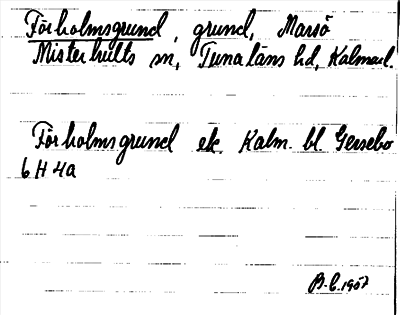 Förholmsgrund, grund, Marsö
Misterhults sn, Tunaläns hd, Kalmar l.
Förholmsgrund ek. Kalm. bl. Gersebo
6 H 4a
B-L.1957